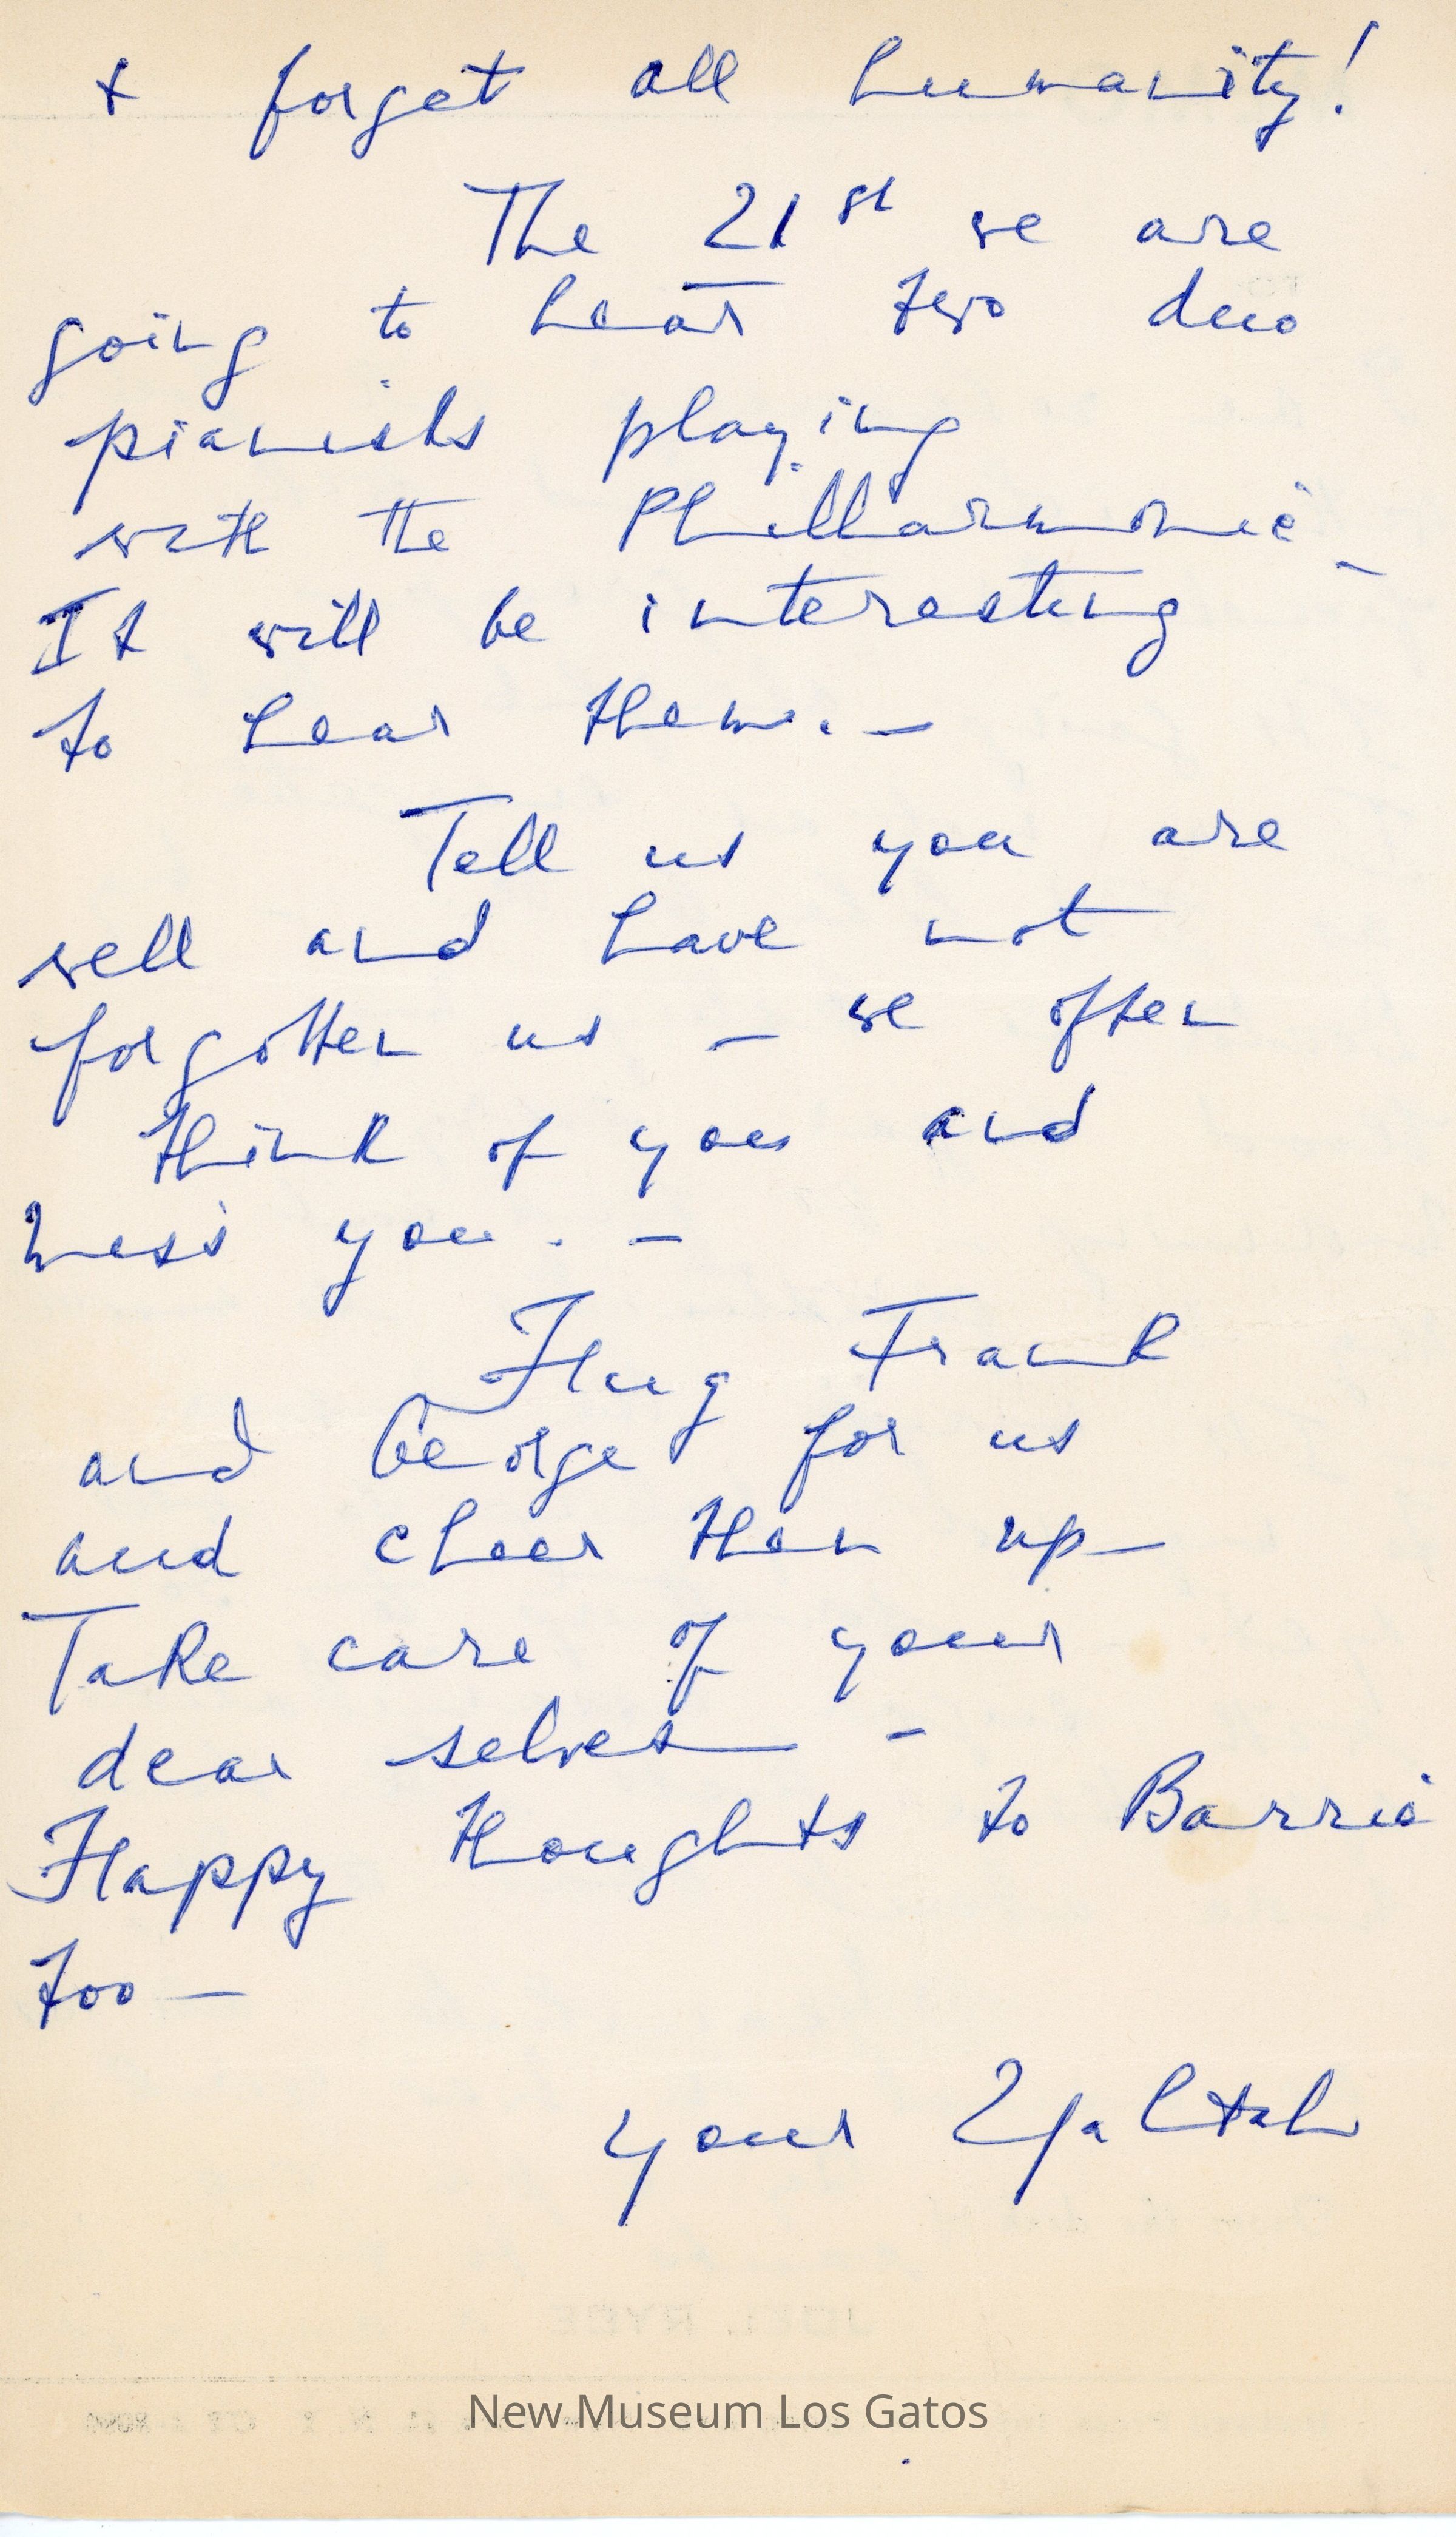 & forget all humanity!
The 21st we are
going to hear two duo
pianists playing
with the Philharmonic _
It will be interesting
to hear them. _
Tell us you are
well and have not
forgotten us _ we often
think of you and
miss you. _
Hug Frank
and George for us
and cheer them up _
Take care of your
dear selves _
Happy thoughts to Barrie
too _
your Yaltah
JOEL RYCE
New Museum Los Gatos